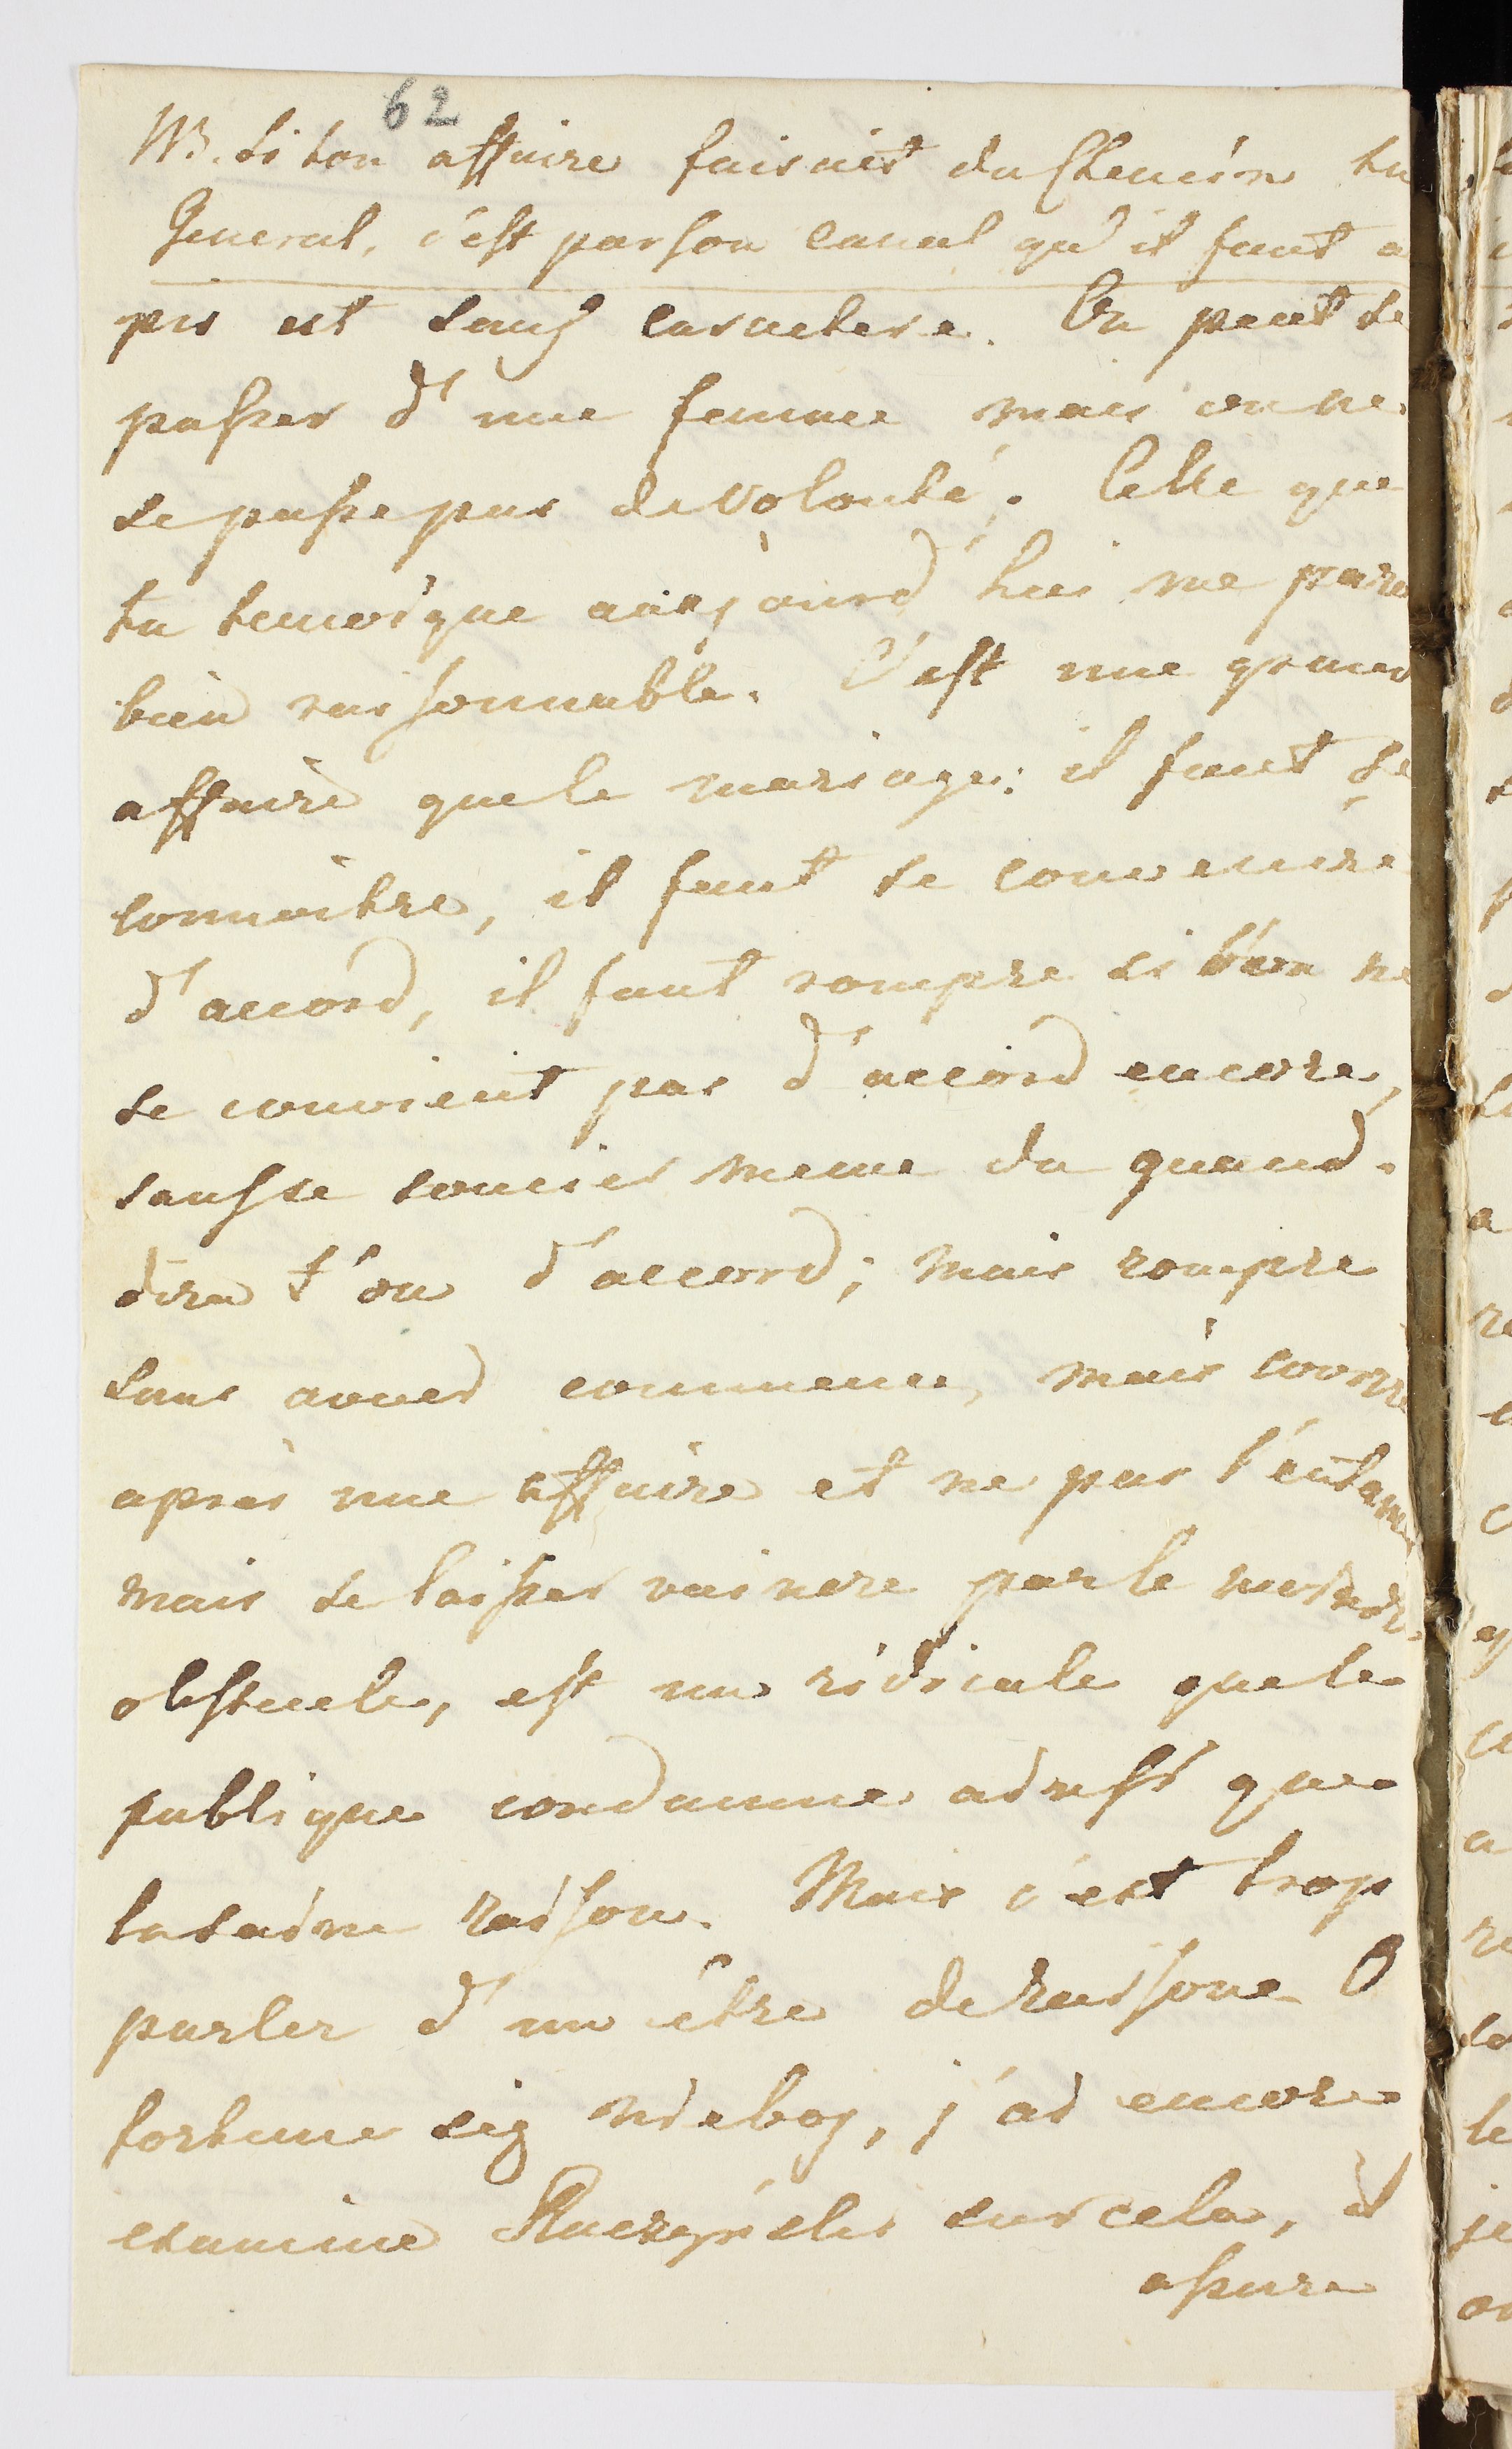 62
NB. si ton affaire faisait du Chemin tu
General, c'est par son canal qu'il faut a
pis est sans caractere. On peut se
passer d'une femme mais on ne
se passe pas de volonté. Celle que
tu temoigne aujourd'hui me pare
bien raisonnable. C'est une grand
affaire que le mariage: il faut se
connoitre, il faut se convenire
d'accord, il faut rompre si l'on ne
se convient pas d'accord encore,
sans se soucier meme du quand-
dira t'on d'accord; mais rompre
sans avoir commence, mais courre
après une affaire et ne pas l'entame
mais se laisser vaincre par le moindre
obstacle, est un ridicule que le
publique condamne ainsi que
la saine raison. Mais c'est trop
parler d'un être deraisone O
fortune sig nieboy, j'ai encore
examine sur cela, il
assure